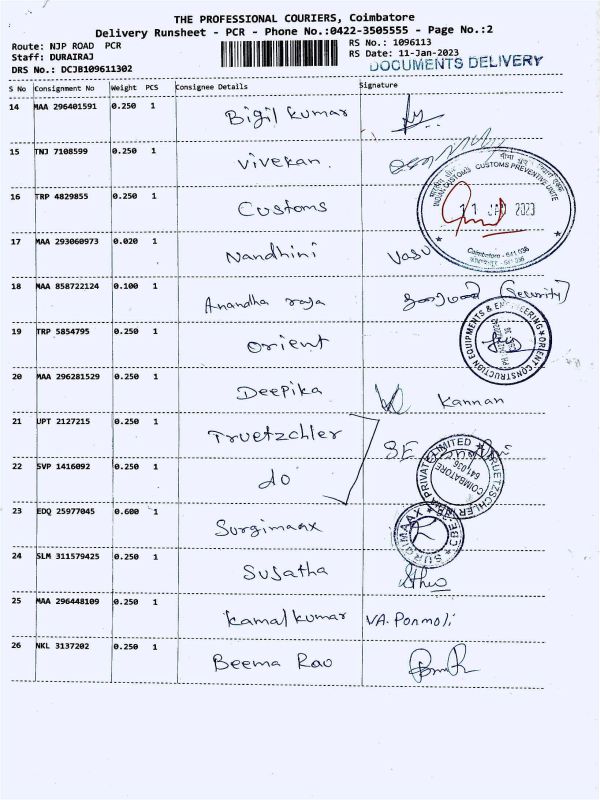 THE PROFESSIONAL COURIERS, Coimbatore
Delivery Runsheet - PCR - Phone No.:0422-3505555 - Page No.:2
Route: NJP ROAD PCR RS No.: 1096113
Staff: DURAIRAJ RS Date: 11-Jan-2023
DRS No.: DCJB109611302 DOCUMENTS DELIVERY
S No Consignment No Weight PCS Consignee Details Signature
14 MAA 296401591 0.250 1 Bigil kumar
15 TNJ 7108599 0.250 1 Vivekan.
16 TRP 4829855 0.250 1 Customs
INDIAN CUSTOMS CUSTOMS PREVENTIVE UNITE
11 JAN 2023
Coimbatore - 641 036
17 MAA 293060973 0.020 1 Nandhini Vasu
18 MAA 858722124 0.100 1 Anandha raja (Security)
19 TRP 5854795 0.250 1 Orient
ORIENT CONSTRUCTION EQUIPMENTS & ENGINEERING
20 MAA 296281529 0.250 1 Deepika Kannan
21 UPT 2127215 0.250 1 Truetzchler SE
22 SVP 1416092 0.250 1 do
TRUETZSCHLER INDIA PRIVATE LIMITED
COIMBATORE
641 036
23 EDQ 25977045 0.600 1 Surgimaax
SURGIMAAX CBE-35
24 SLM 311579425 0.250 1 Susatha
25 MAA 296448109 0.250 1 Kamalkumar VA. Ponmoli
26 NKL 3137202 0.250 1 Beema Rao